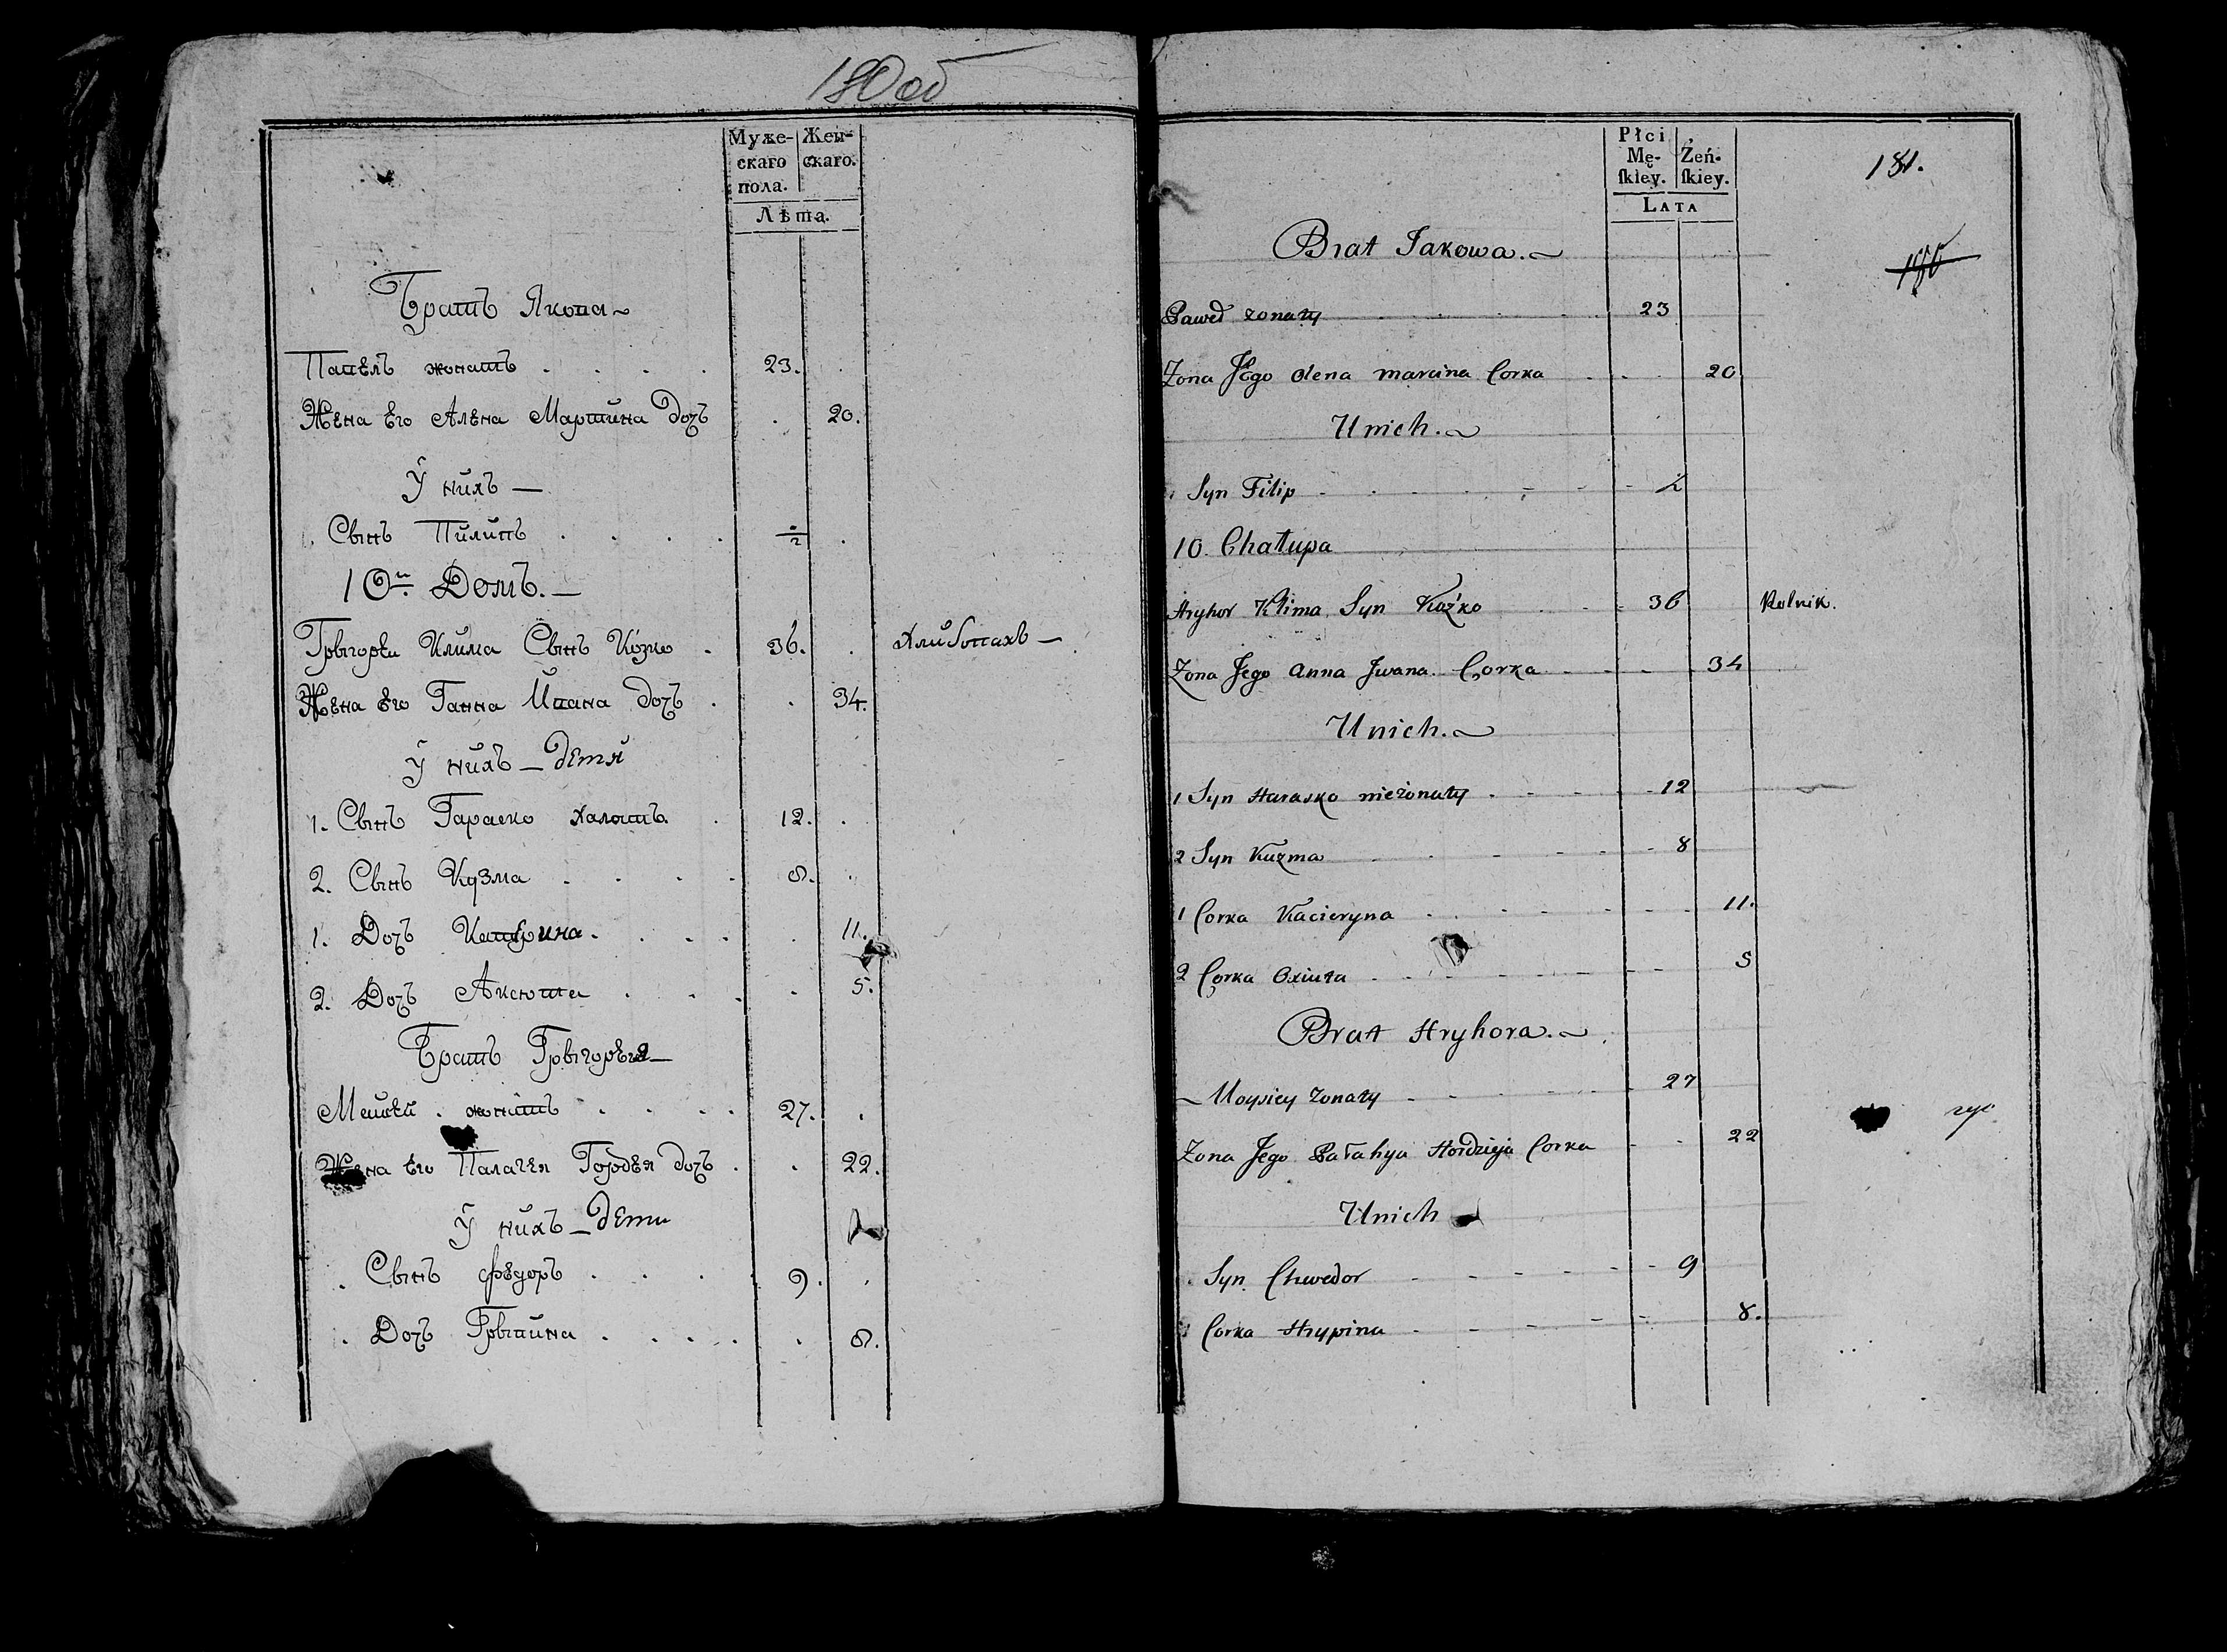 180 об
Муже- Жен-
скаго скаго.
пола.
Лѣта.
Братъ Якова
Павелъ жонатъ . . . . 23.
Жена Его Алена Мартина дочъ . 20.
У нихъ —
. Сынъ Пилипъ . . . . ½ .
10й. Домъ. —
Грыгорей Клима Сынъ Козко . 36. . Хлибопахъ —
Жена Его Ганна Ивана дочъ . . 34.
У нихъ — дети
1. Сынъ Гараско Халостъ . 12. .
2. Сынъ Кузма . . . . 8. .
1. Дочъ Катерина . . . . . 11.
2. Дочъ Аксюта . . . . 5.
Братъ Грыгорея —
Мойсей . жонатъ . . . . 27. .
Жена Его Палагея Гордея дочъ . . 22.
У нихъ — дети
. Сынъ Федоръ . . . . 9. .
. Дочъ Грыпина . . . . . 8.
Płci
Mę- Żeń-
ſkiey. ſkiey.
LATA
181.
Brat Jakowa.
Paweł żonaty 23
Zona Jego Olena Marcina Corka 20
U nich.
1 Syn Filip ½
10. Chałupa
Hryhor Klima Syn Kożko 36 Rolnik.
Zona Jego Anna Jwana Corka 34
U nich.
1 Syn Harasko nieżonaty 12
2 Syn Kuzma 8
1 Corka Kacieryna 11.
2 Corka Oxiuta 5
Brat Hryhora.
Moysiey żonaty 27
Zona Jego Pałahya Hordzieja Corka 22
U nich
. Syn Chwedor 9
1 Corka Hrypina 8.